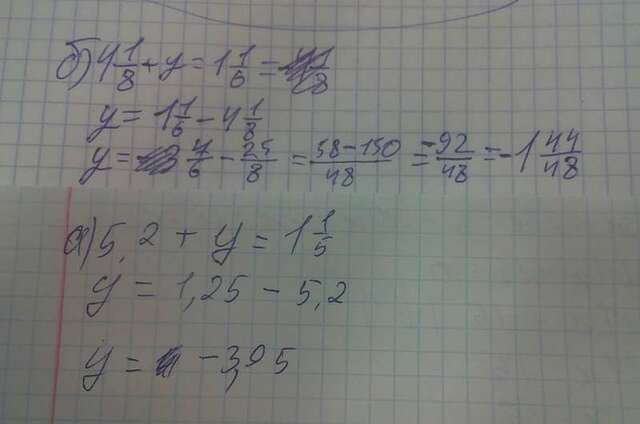 б) 4 1/8 + y = 1 1/6 =
y = 1 1/6 - 4 1/8
y = 7/6 - 25/8 = 58-150/48 = -92/48 = -1 44/48
а) 5,2 + y = 1 1/5
y = 1,25 - 5,2
y = -3,95